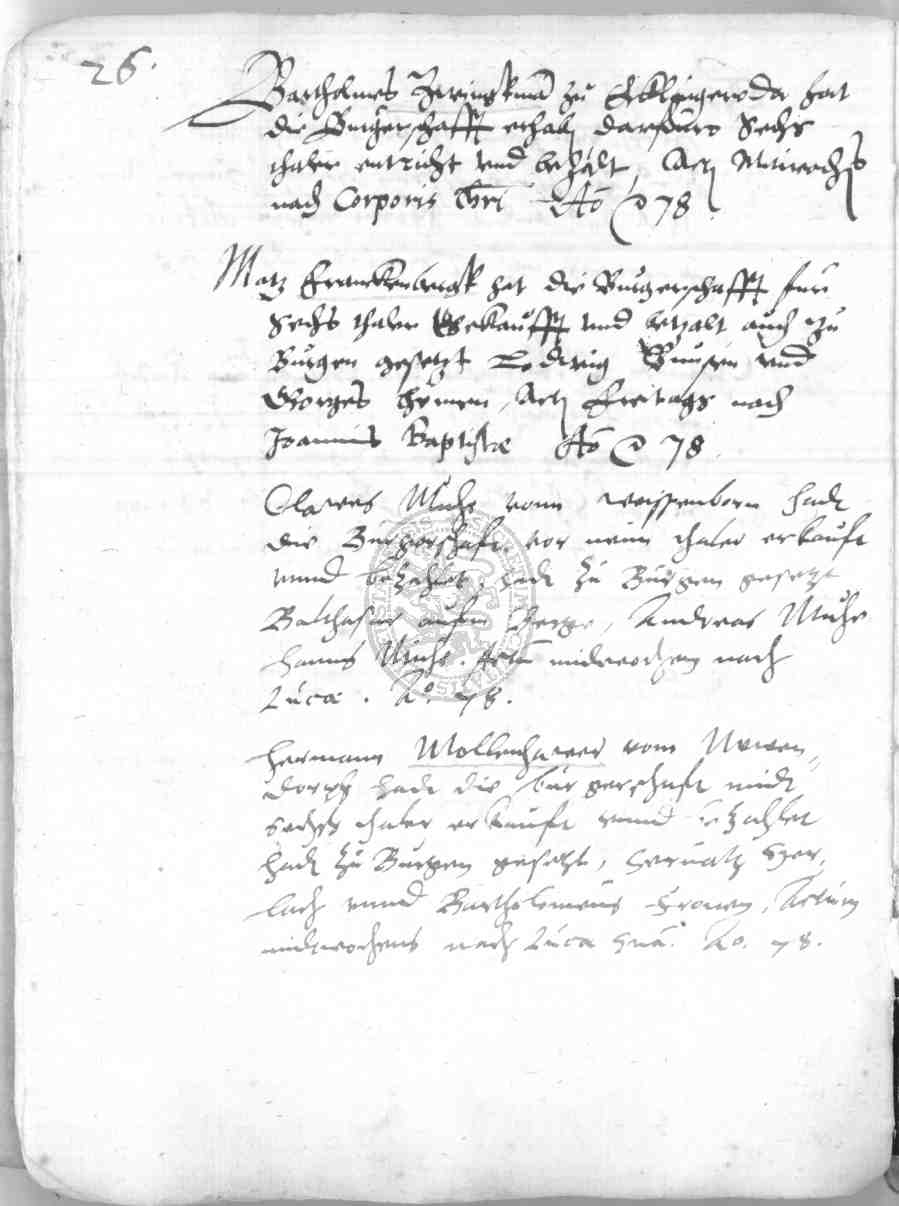 26.
Bartholmes Zwingkman zu Ecklingeroda hat
die Burgerschafft erhalt darfuer Sechs
thaler entricht und bezalt, Act Mitwochs
nach Corporis Chri Ao 78
Matz Franckenbergk hat die Burgerschafft fur
Sechs thaler Gekaufft und bezalt auch zu
Burgen gesetzt Lodwig und
Gorges Act Freitags nach
Joannis Baptistae Ao 78
Clawes Muhe vonn Weissenborn hadt
die Burgerschaft vor neun thaler erkauft
unnd bezahlet, hadt zu Burgen gesetzt
Balthasar aufm Berge, Andreas Muhe
Hanns Muhe. Actum midwochen nach
Luca. Ao. 78.
Hermann Mollenhawer vom Newen,
dorff hadt die burgerschaft midt
Sechs thaler erkauft unnd bezahlet
hadt zu Burgen gesetzt, Servatz Ger,
lach unnd Bartholomeus Actum
midwochens nach Luca Ao. 78.